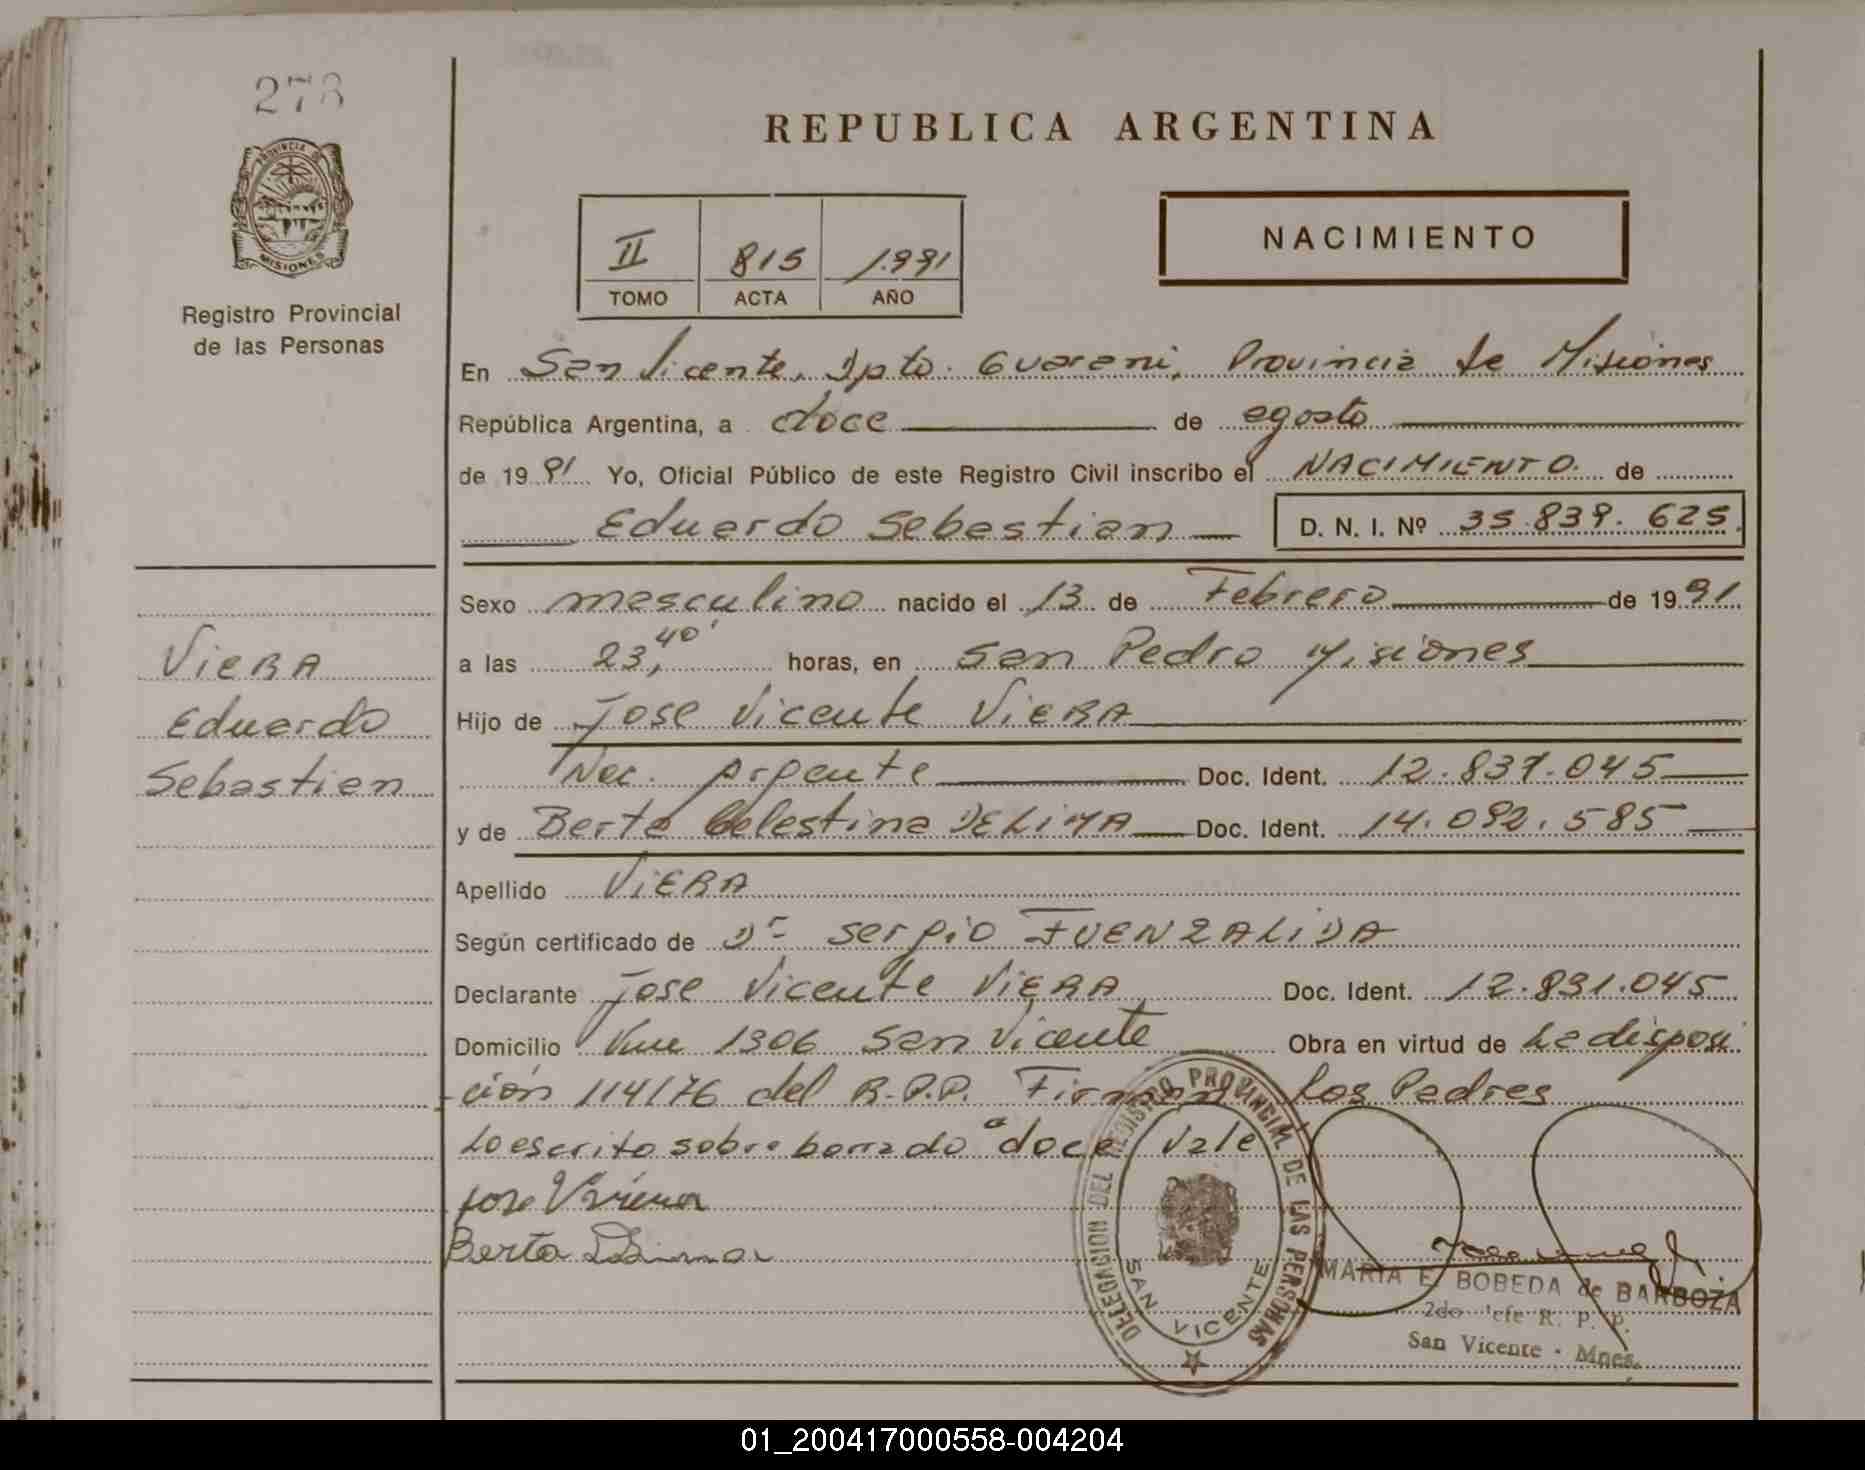 278
PROVINCIA DE
MISIONES
Registro Provincial
de las Personas
REPUBLICA ARGENTINA
II 815 1.991
TOMO ACTA AÑO
NACIMIENTO
En San Vicente, Dpto. Guarani, Provincia de Misiones
República Argentina, a doce de agosto
de 1991 Yo, Oficial Público de este Registro Civil inscribo el NACIMIENTO. de
Eduardo Sebastian D. N. I. Nº 35.839.625
Sexo masculino nacido el 13 de Febrero de 1991
a las 23,40' horas, en San Pedro Misiones
Hijo de Jose Vicente VIERA
Nac. Argente Doc. Ident. 12.831.045
y de Berta Celestina DELIMA Doc. Ident. 14.092.585
Apellido VIERA
Según certificado de Dr Sergio FUENZALIDA
Declarante Jose Vicente VIERA Doc. Ident. 12.831.045
Domicilio 1306 San Vicente Obra en virtud de La disposi
ción 114/76 del R.P.P. Firman Los Padres
Lo escrito sobre borrado "doce" Vale
Jose Viriera
Berta
VIERA
Eduardo
Sebastian
DELEGACION DEL REGISTRO PROVINCIAL DE LAS PERSONAS
SAN VICENTE
MARIA E. BOBEDA de BARBOZA
2do Jefe R. P. P.
San Vicente - Mnes.
01_200417000558-004204